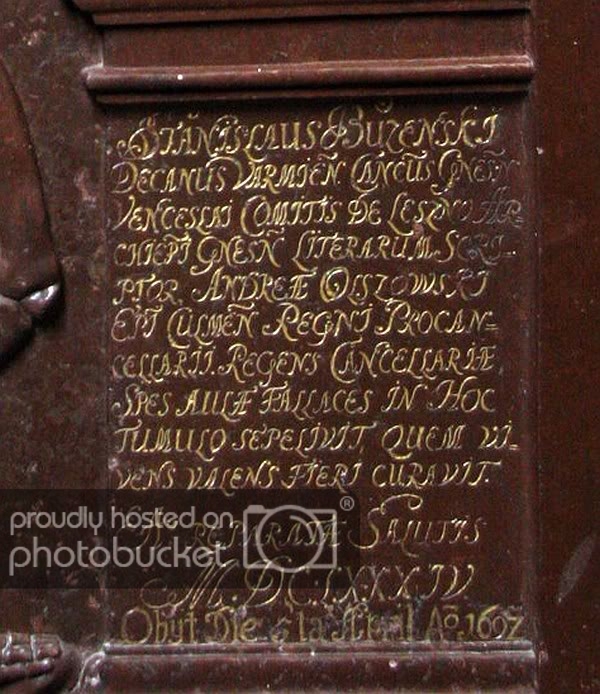 STANISLAUS BUZENSKI
DECANUS VARMIEN. CANCUS GNESN
VENCESLAI COMITIS DE LESZNO AR-
CHIEPI GNESN LITERARUM SCRI-
PTOR, ANDREÆ OLSZOWSKI
EPI CULMEN REGNI PROCAN-
CELLARII. REGENS CANCELLARIÆ,
SPES AULÆ FALLACES IN HOC
TUMULO SEPELIVIT, QUEM VI-
VENS VALENS FIERI CURAVIT.
REPARATÆ SALUTIS
M. DC. LXXXIV
Obijt Die Aõ. 1692
proudly hosted on
photobucket
®